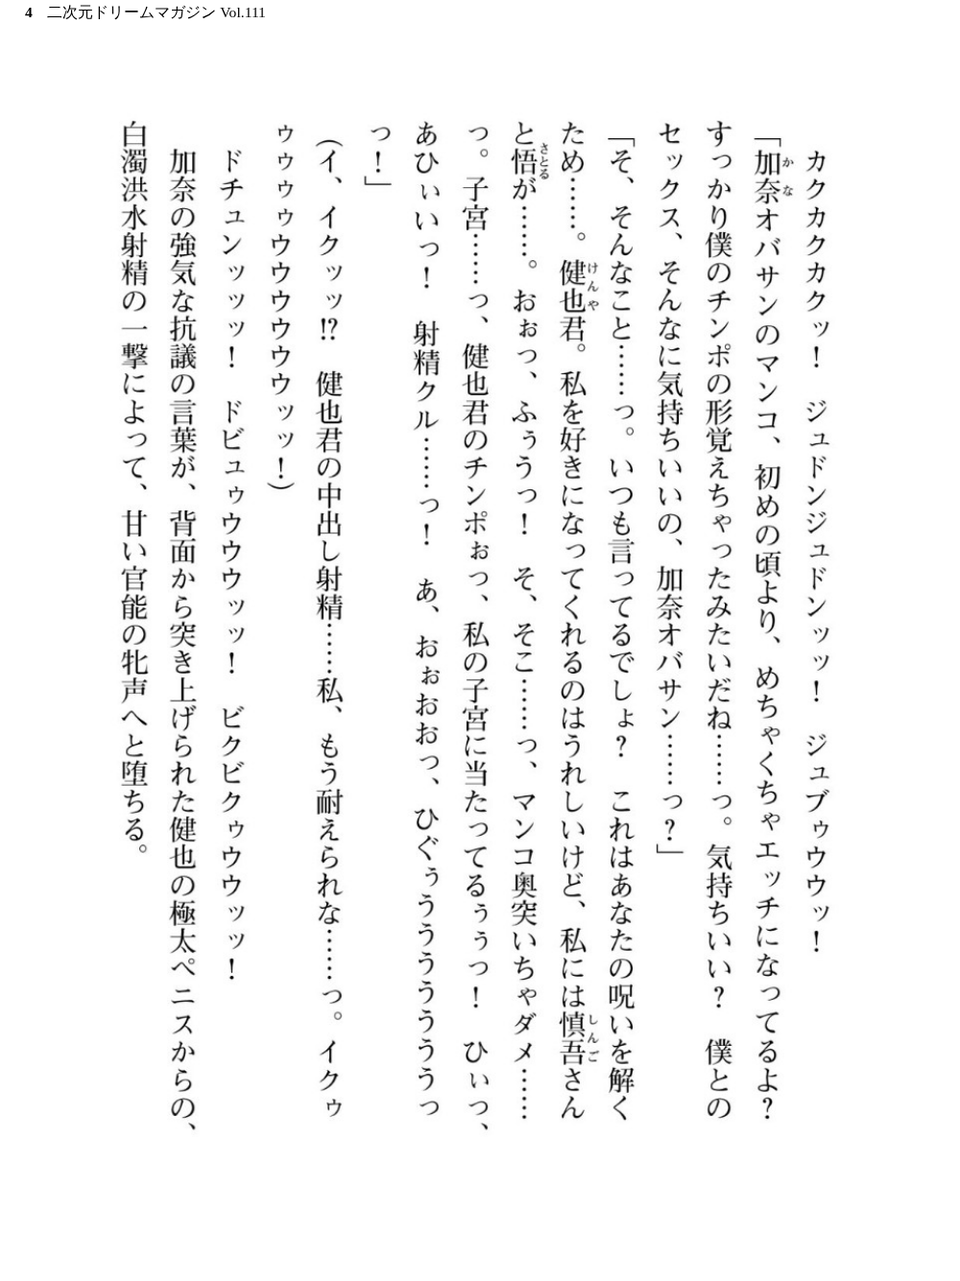 4 二次元ドリームマガジン Vol.111
　カクカクカクッ！　ジュドンジュドンッッ！　ジュブゥウウッ！
「加奈オバサンのマンコ、初めの頃より、めちゃくちゃエッチになってるよ？
すっかり僕のチンポの形覚えちゃったみたいだね……っ。気持ちいい？　僕との
セックス、そんなに気持ちいいの、加奈オバサン……っ？」
「そ、そんなこと……っ。いつも言ってるでしょ？　これはあなたの呪いを解く
ため……。健也君。私を好きになってくれるのはうれしいけど、私には慎吾さん
と悟が……。おぉっ、ふぅうっ！　そ、そこ……っ、マンコ奥突いちゃダメ……
っ。子宮……っ、健也君のチンポぉっ、私の子宮に当たってるぅぅっ！　ひぃっ、
あひぃいっ！　射精クル……っ！　あ、おぉおおっ、ひぐぅううううううっ
っ！」
（イ、イクッッ!?　健也君の中出し射精……私、もう耐えられな……っ。イクゥ
ゥゥゥゥウウウウウウッッ！）
　ドチュンッッッ！　ドビュゥウウウッッ！　ビクビクゥウウッッ！
　加奈の強気な抗議の言葉が、背面から突き上げられた健也の極太ペニスからの、
白濁洪水射精の一撃によって、甘い官能の牝声へと堕ちる。